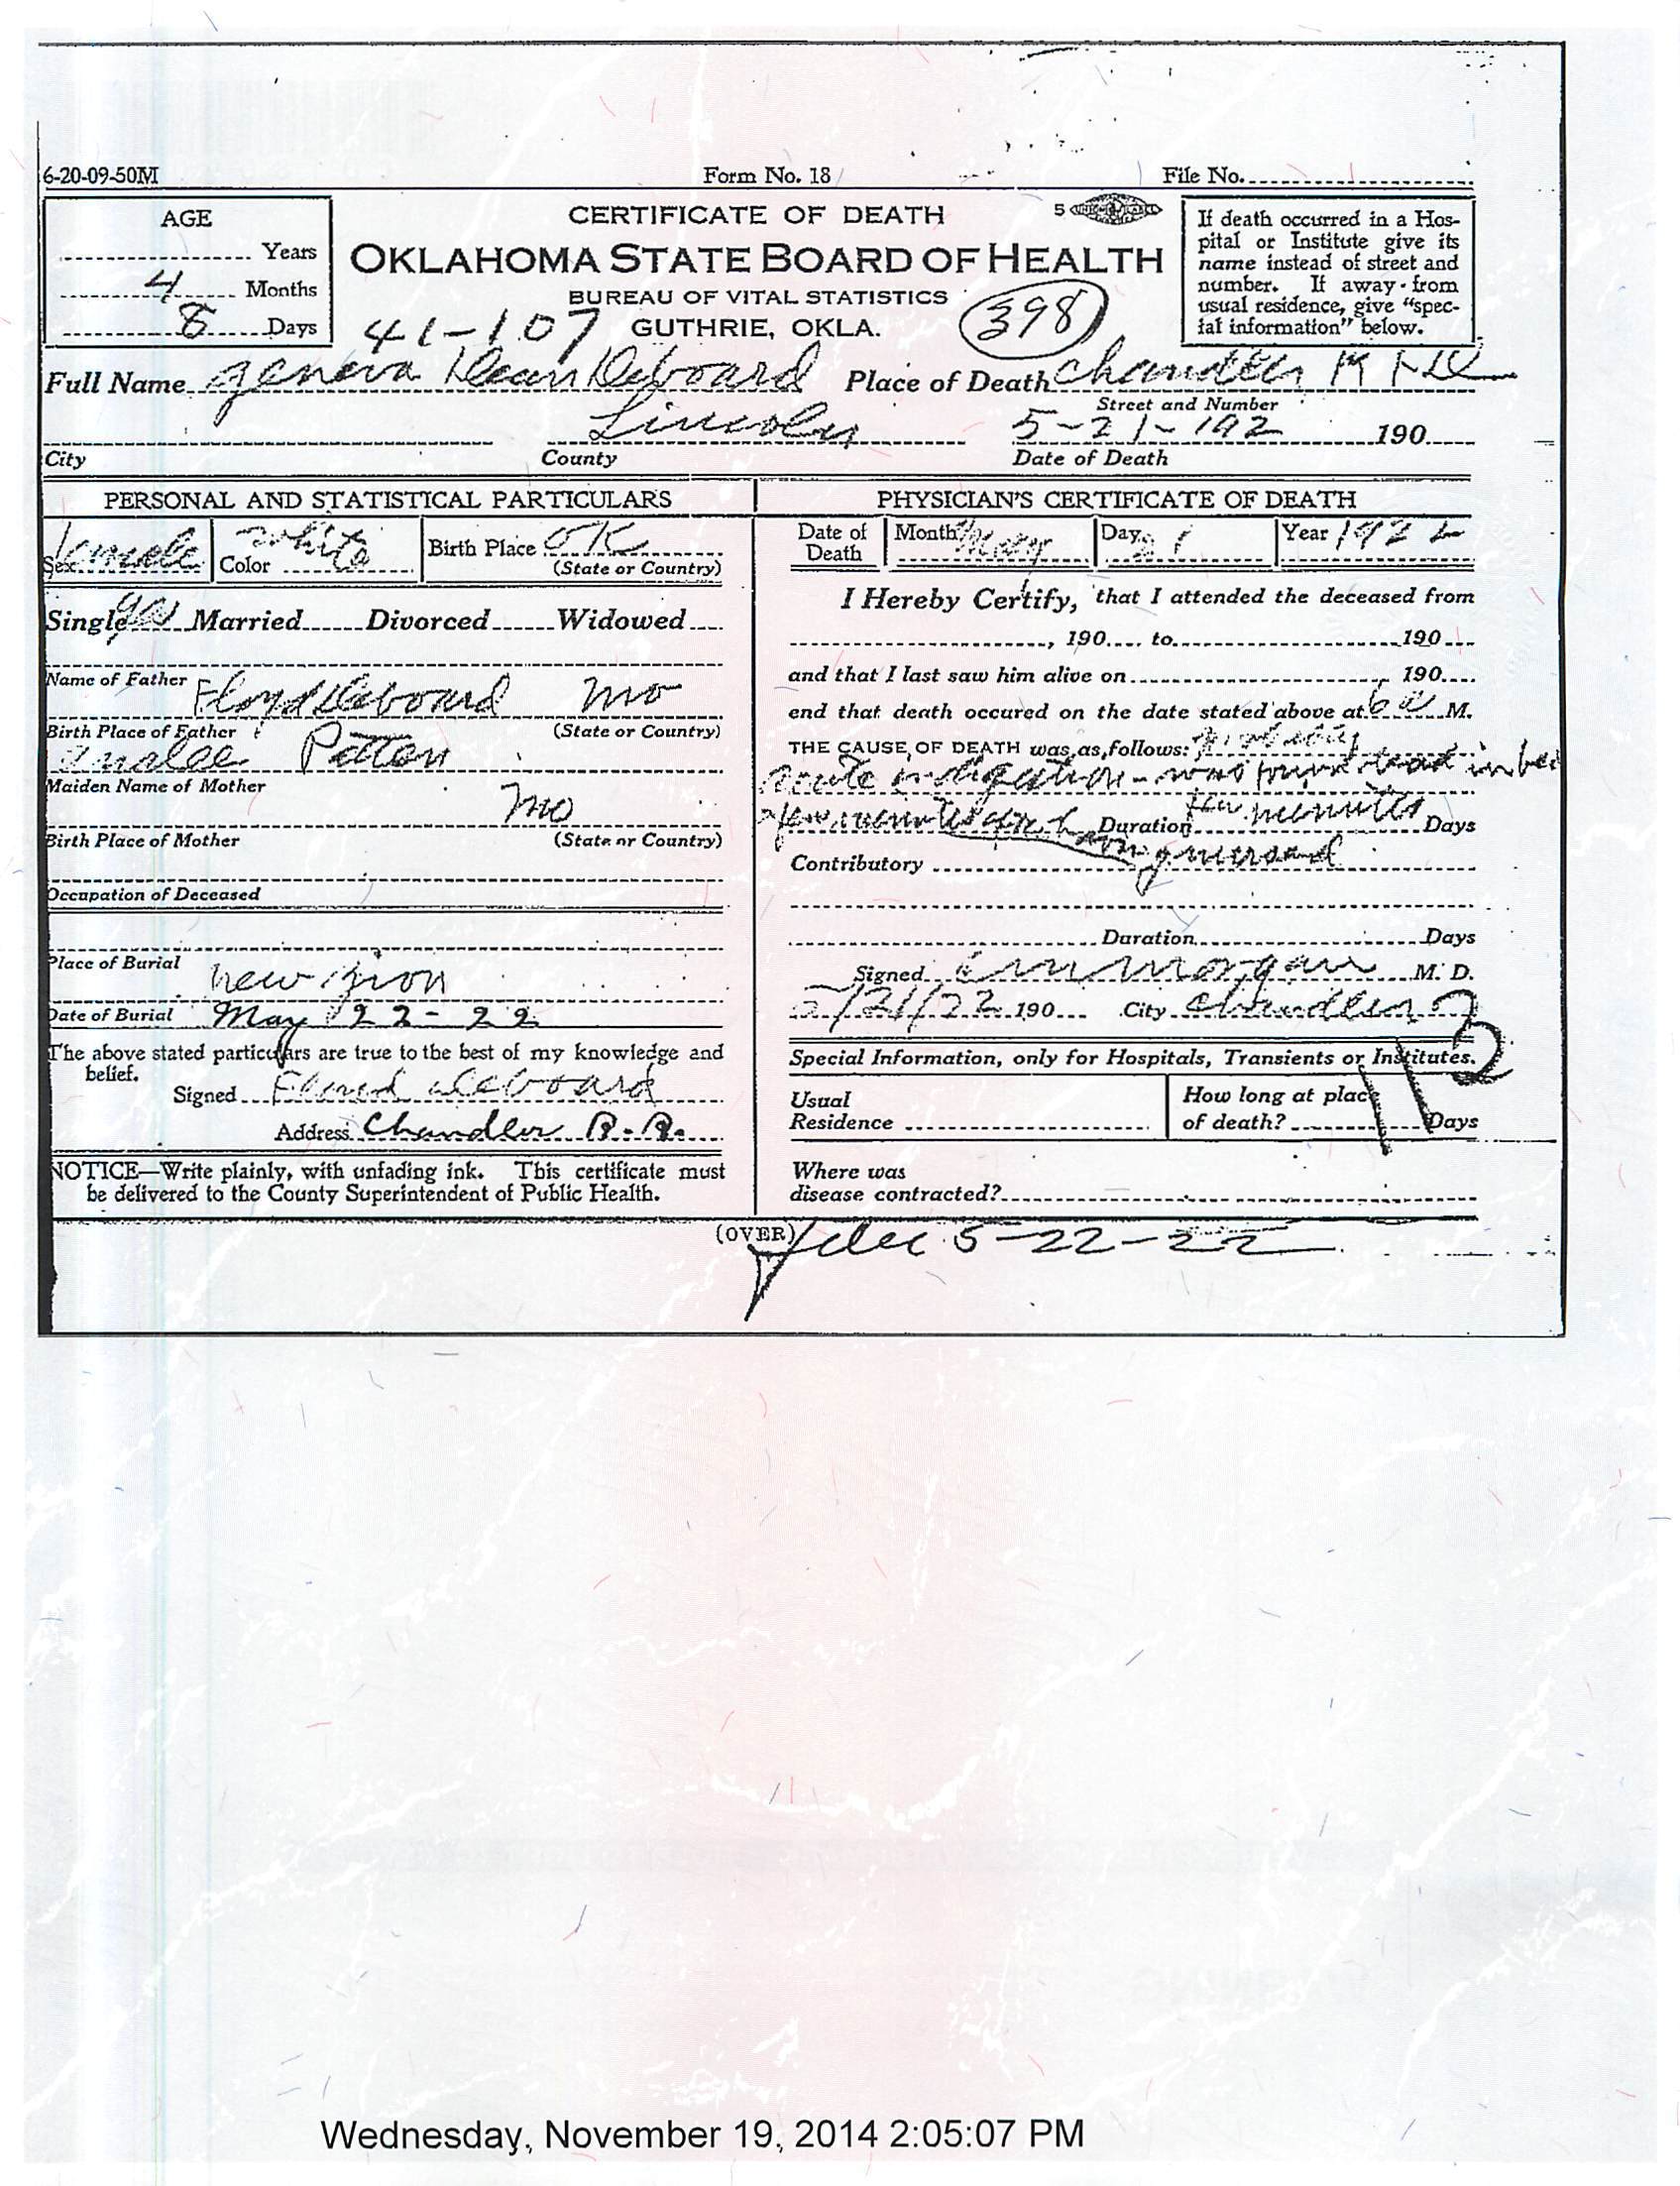 6-20-09-50M Form No. 18 File No.
AGE
Years
4 Months
8 Days
CERTIFICATE OF DEATH
OKLAHOMA STATE BOARD OF HEALTH
BUREAU OF VITAL STATISTICS
GUTHRIE, OKLA.
41-107
398
5
If death occurred in a Hos-
pital or Institute give its
name instead of street and
number. If away from
usual residence, give "spec-
ial information" below.
Full Name Geneva Dean Deboard Place of Death Chandler
Street and Number
Lincoln 5-21-192 190
City County Date of Death
PERSONAL AND STATISTICAL PARTICULARS
Sex female Color white Birth Place OK
(State or Country)
Single Married Divorced Widowed
Name of Father Floyd Deboard Mo
Birth Place of Father (State or Country)
Patten
Maiden Name of Mother
Mo
Birth Place of Mother (State or Country)
Occupation of Deceased
Place of Burial New Zion
Date of Burial May 22-22
The above stated particulars are true to the best of my knowledge and
belief.
Signed Deboard
Address Chandler R.R.
NOTICE—Write plainly, with unfading ink. This certificate must
be delivered to the County Superintendent of Public Health.
PHYSICIAN'S CERTIFICATE OF DEATH
Date of Death Month May Day 21 Year 1922
I Hereby Certify, that I attended the deceased from
, 190 to 190
and that I last saw him alive on , 190
end that death occured on the date stated above at 6 a M.
THE CAUSE OF DEATH was as follows: probably
acute indigestion - was found dead in bed
few minutes after having nursed
Duration few minutes Days
Contributory
Duration Days
Signed Morgan M. D.
5/21/22 190 City Chandler
113
Special Information, only for Hospitals, Transients or Institutes.
Usual
Residence
How long at place
of death? Days
Where was
disease contracted?
(OVER)
5-22-22
Wednesday, November 19, 2014 2:05:07 PM